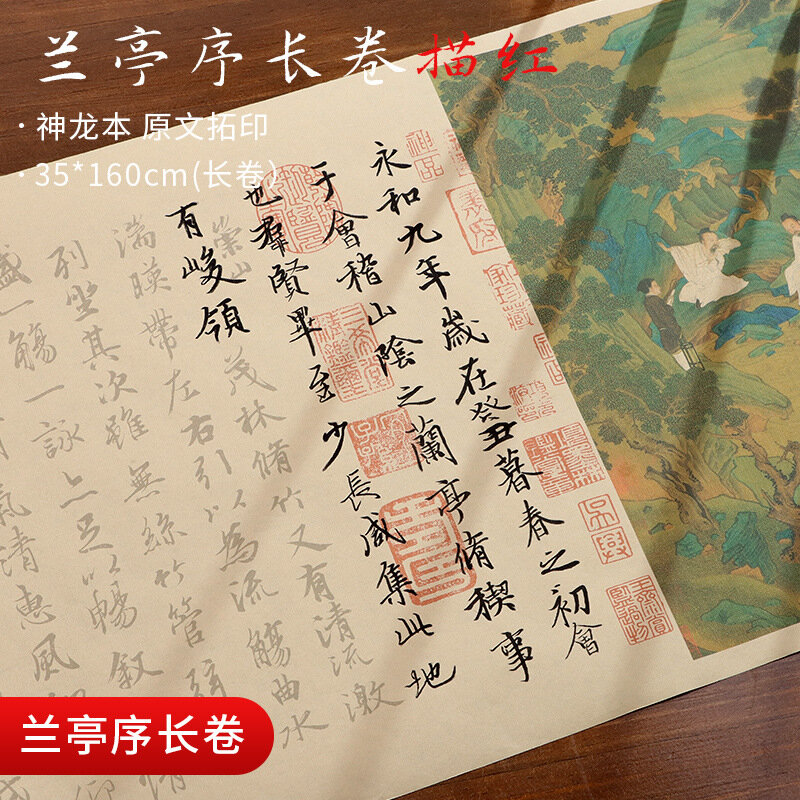 兰亭序长卷描红
· 神龙本 原文拓印
· 35*160cm(长卷)
永和九年歲在癸丑暮春之初會
于會稽山陰之蘭亭脩稧事
也羣賢畢至少長咸集此地
有峻領茂林脩竹又有清流激
崇山
湍暎帶左右引以為流觴曲水
列坐其次雖無絲竹管弦
盛一觴一詠亦足以暢敘
氣清惠風
兰亭序长卷